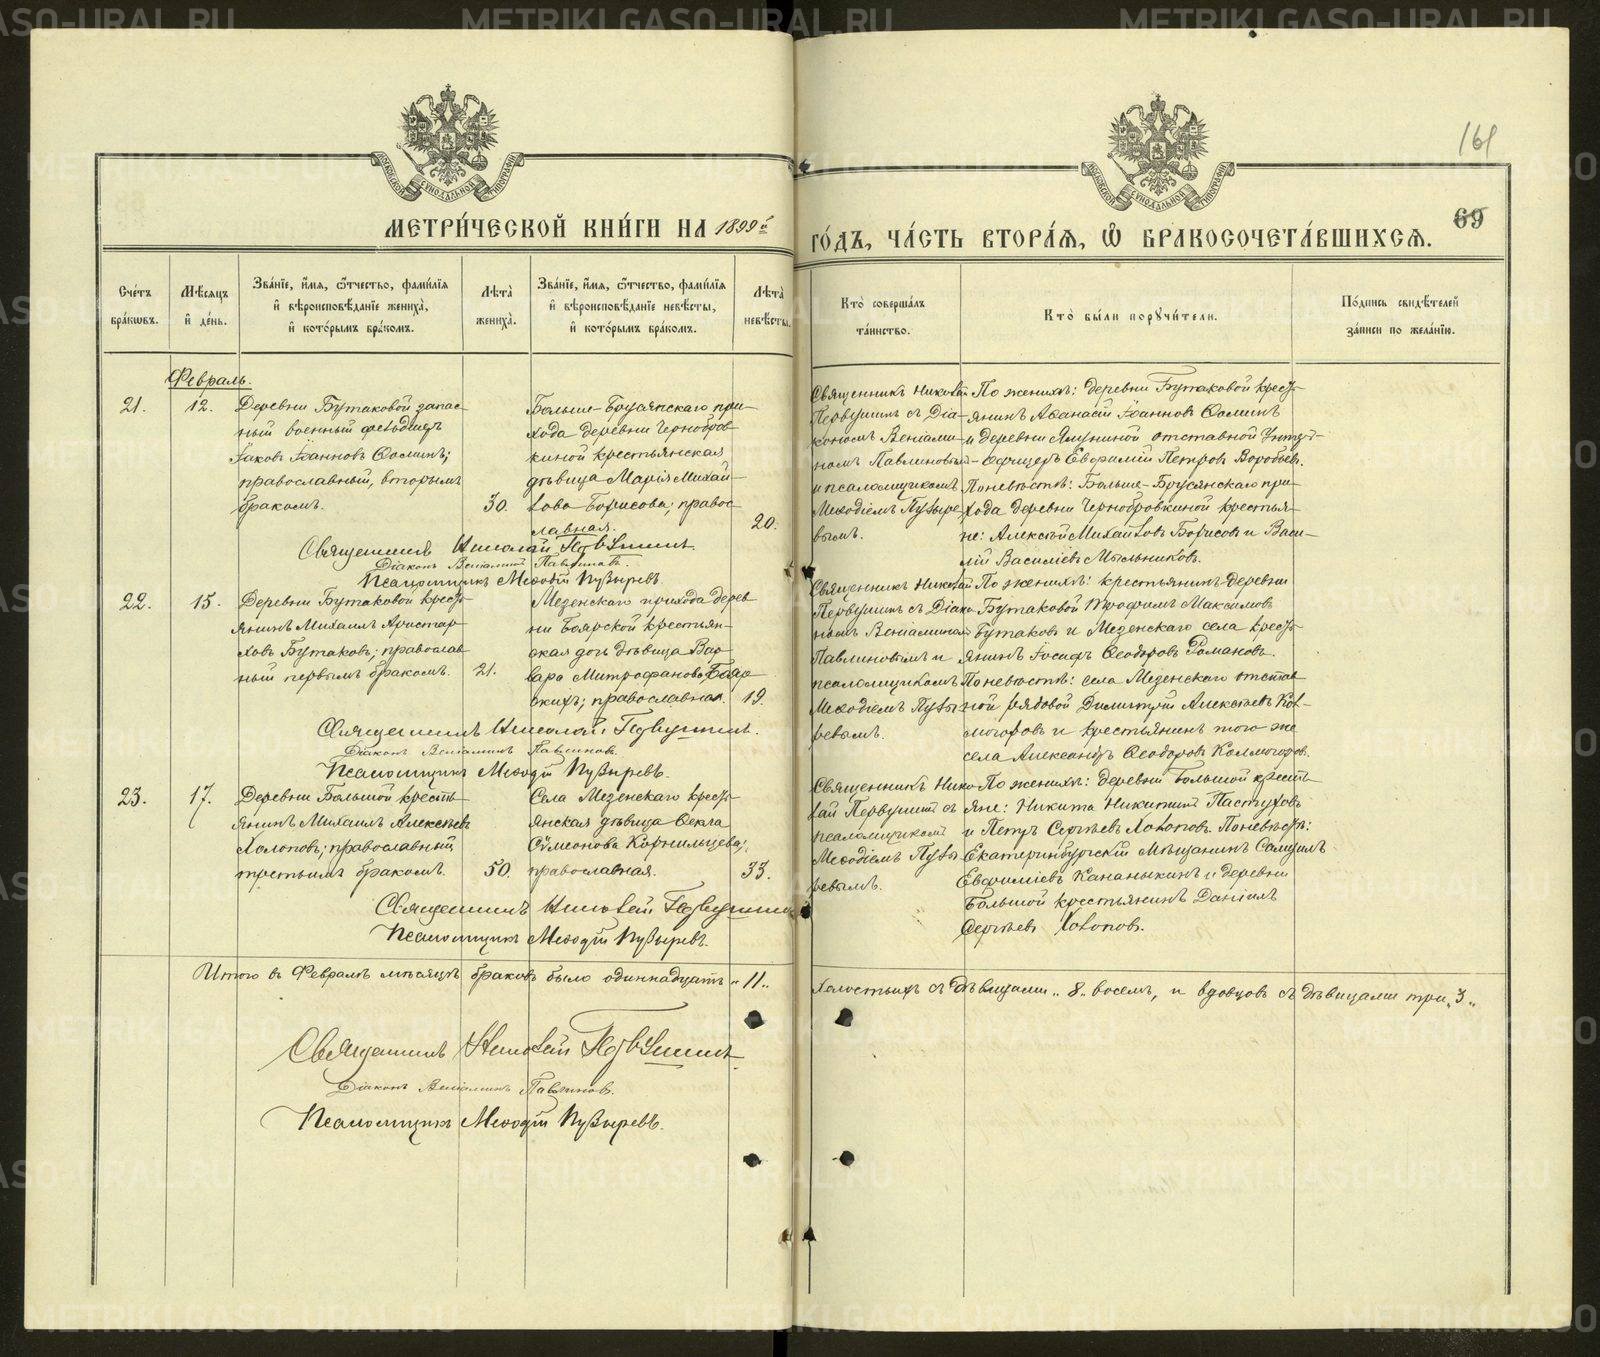 МЕТРИ́ЧЕСКОЙ КНИ́ГИ НА 1899й
ГО́ДЪ, ЧА́СТЬ ВТОРА́Я, Ѡ БРАКОСОЧЕТА́ВШИХСЯ.
161
69
МОСКОВСКОЙ СѴНОДАЛЬНОЙ ТИПОГРАФІИ
МОСКОВСКОЙ СѴНОДАЛЬНОЙ ТИПОГРАФІИ
Сче́тъ бра́кωвъ.
Мѣ́сяцъ и҆ де́нь.
Зва́нїе, и҆́мя, ѻ҆́тчество, фами́лїя и҆ вѣроисповѣ́данїе жениха̀, и҆ кото́рымъ бра́комъ.
Лѣ́та̀ жениха̀.
Зва́нїе, и҆́мя, ѻ҆́тчество, фами́лїя и҆ вѣроисповѣ́данїе невѣ́сты, и҆ кото́рымъ бра́комъ.
Лѣ́та̀ невѣ́сты.
Кто̀ соверша́лъ та́инство.
Кто̀ бы́ли порꙋчи́тели.
По́дпись свидѣ́телей за́писи по жела́нїю.
Февраль.
21.
12.
Деревни Бутаковой запас-
ный военный фельдшеръ
Іаковъ Іоанновъ Ѳоминъ;
православный, вторымъ
бракомъ.
30.
Больше-Брусянскаго при-
хода деревни Чернобров-
киной крестьянская
дѣвица Марія Михай-
лова Борисова, правос-
лавная.
20.
Священникъ Николай
Первушинъ съ Діа-
кономъ Веніами-
номъ Павлиновымъ
и псаломщикомъ
Меѳодіемъ Пузыре-
вымъ.
По женихѣ: деревни Бутаковой кресть-
янинъ Аѳанасій Іоанновъ Ѳоминъ
и деревни Ялуниной отставной Унтеръ-
Офицеръ Евфимій Петровъ Воробьевъ.
По невѣстѣ: Больше-Брусянскаго при-
хода деревни Чернобровкиной крестья-
не: Алексѣй Михайловъ Борисовъ и Васи-
лій Василіевъ Мыльниковъ.
Священникъ Николай Первушинъ
Діаконъ Веніаминъ Павлиновъ.
Псаломщикъ Меѳодій Пузыревъ.
22.
15.
Деревни Бутаковой кресть-
янинъ Михаилъ Аристар-
ховъ Бутаковъ; православ-
ный первымъ бракомъ.
21.
Мезенскаго прихода дерев-
ни Боярской крестьян-
ская дочь дѣвица Вар-
вара Митрофанова Бояр-
скихъ; православная.
19.
Священникъ Николай
Первушинъ съ Діако-
номъ Веніаминомъ
Павлиновымъ и
псаломщикомъ
Меѳодіемъ Пузы-
ревымъ.
По женихѣ: крестьянинъ деревни
Бутаковой Трофимъ Максимовъ
Бутаковъ и Мезенскаго села кресть-
янинъ Іосифъ Ѳеодоровъ Романовъ.
По невѣстѣ: села Мезенскаго отстав-
ной рядовой Димитрій Алексѣевъ Кол-
могоровъ и крестьянинъ того же
села Александръ Ѳеодоровъ Колмогоровъ.
Священникъ Николай Первушинъ.
Діаконъ Веніаминъ Павлиновъ.
Псаломщикъ Меѳодій Пузыревъ.
23.
17.
Деревни Большой кресть-
янинъ Михаилъ Алексѣевъ
Холоповъ; православный
третьимъ бракомъ.
50.
Села Мезенскаго кресть-
янская дѣвица Ѳекла
Сѵмеонова Корнильцева;
православная.
33.
Священникъ Нико-
лай Первушинъ съ
псаломщикомъ
Меѳодіемъ Пузы-
ревымъ.
По женихѣ: деревни Большой кресть-
яне: Никита Никитинъ Пастуховъ
и Петръ Сергѣевъ Холоповъ. По невѣстѣ:
Екатеринбургскій мѣщанинъ Самуилъ
Евфиміевъ Кананыкинъ и деревни
Большой крестьянинъ Даніилъ
Сергѣевъ Холоповъ.
Священникъ Николай Первушинъ
Псаломщикъ Меѳодій Пузыревъ.
Итого въ Февралѣ мѣсяцѣ браковъ было одиннадцать „11„
Холостыхъ съ дѣвицами „8„ восемь, и вдовцовъ съ дѣвицами три „3„
Священникъ Николай Первушинъ
Діаконъ Веніаминъ Павлиновъ.
Псаломщикъ Меѳодій Пузыревъ.
METRIKI.GASO-URAL.RU